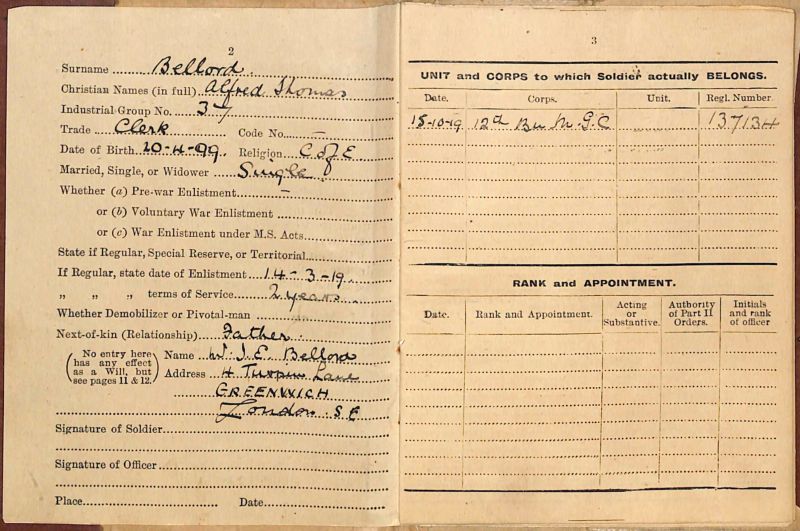 2
Surname Bellord
Christian Names (in full) Alfred Thomas
Industrial Group No. 37
Trade Clerk Code No. –
Date of Birth 20-4-99. Religion C of E.
Married, Single, or Widower Single
Whether (a) Pre-war Enlistment –
or (b) Voluntary War Enlistment
or (c) War Enlistment under M.S. Acts
State if Regular, Special Reserve, or Territorial
If Regular, state date of Enlistment 14-3-19.
„ „ „ terms of Service 2 years
Whether Demobilizer or Pivotal-man
Next-of-kin (Relationship) Father
(No entry here has any effect as a Will, but see pages 11 & 12.)
Name J. E. Bellord
Address 4 Lane
GREENWICH
London. S E
Signature of Soldier
Signature of Officer
Place Date
3
UNIT and CORPS to which Soldier actually BELONGS.
Date. Corps. Unit. Regl. Number
15-10-19 12th Bn M.G.C 137134
RANK and APPOINTMENT.
Date. Rank and Appointment. Acting or Substantive. Authority of Part II Orders. Initials and rank of officer